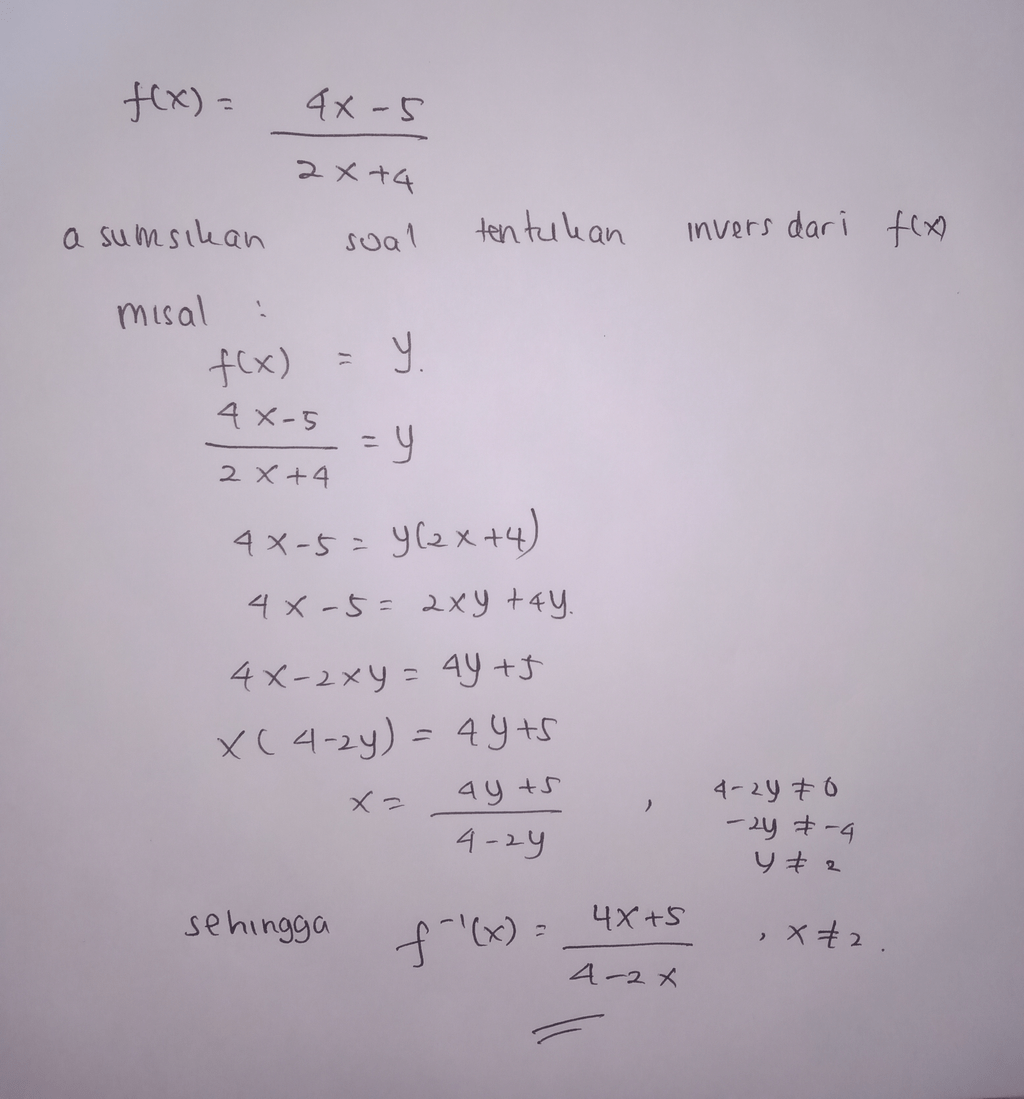 f(x) = 4x - 5 / 2x + 4
asumsikan soal tentukan invers dari f(x)
misal :
f(x) = y.
4x - 5 / 2x + 4 = y
4x - 5 = y(2x + 4)
4x - 5 = 2xy + 4y.
4x - 2xy = 4y + 5
x(4 - 2y) = 4y + 5
x = 4y + 5 / 4 - 2y , 4 - 2y ≠ 0
-2y ≠ -4
y ≠ 2
sehingga f⁻¹(x) = 4x + 5 / 4 - 2x , x ≠ 2.